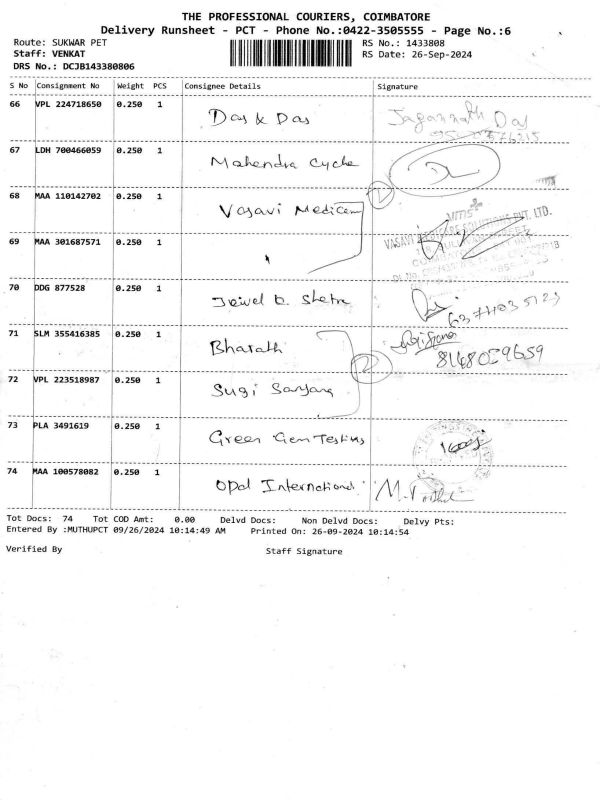 THE PROFESSIONAL COURIERS, COIMBATORE
Delivery Runsheet - PCT - Phone No.:0422-3505555 - Page No.:6
Route: SUKWAR PET RS No.: 1433808
Staff: VENKAT RS Date: 26-Sep-2024
DRS No.: DCJB143380806
S No Consignment No Weight PCS Consignee Details Signature
66 VPL 224718650 0.250 1 Das & Das Jagannath Das
67 LDH 700466059 0.250 1 Mahendra Cycle
68 MAA 110142702 0.250 1 Vasavi Medicare 2
VASAVI MEDICARE SOLUTIONS PVT. LTD.
69 MAA 301687571 0.250 1
70 DDG 877528 0.250 1 Jewel D. 6374035123
71 SLM 355416385 0.250 1 Bharath 8148029659
2
72 VPL 223518987 0.250 1 Sugi
73 PLA 3491619 0.250 1 Green Gem Testing
74 MAA 100578082 0.250 1 Opal International M.
Tot Docs: 74 Tot COD Amt: 0.00 Delvd Docs: Non Delvd Docs: Delvy Pts:
Entered By :MUTHUPCT 09/26/2024 10:14:49 AM Printed On: 26-09-2024 10:14:54
Verified By Staff Signature